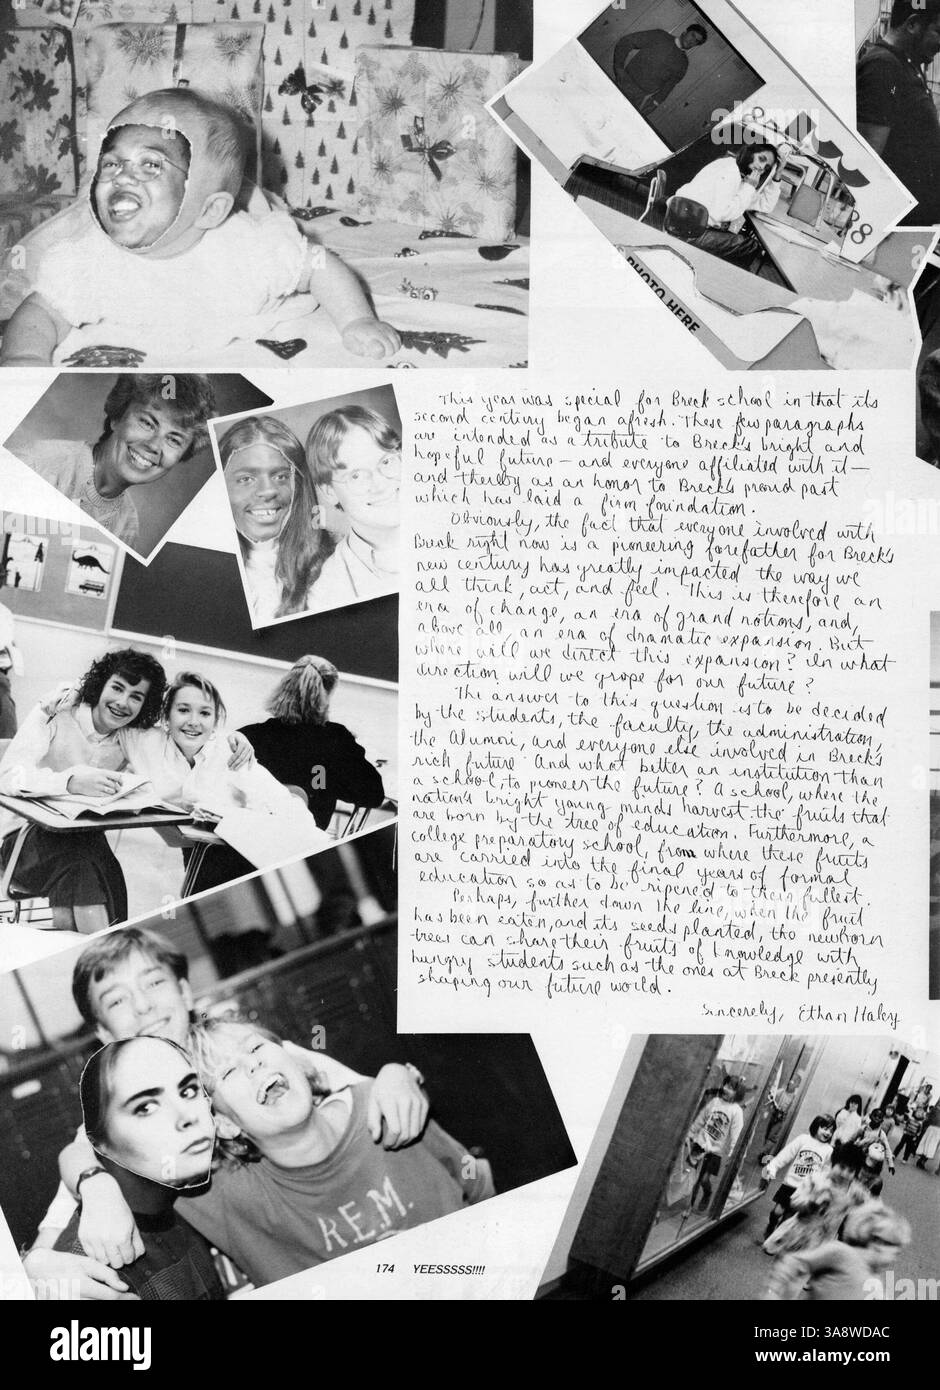 PHOTO HERE
This year was special for Breck school in that its
second century began afresh. These few paragraphs
are intended as a tribute to Breck's bright and
hopeful future — and everyone affiliated with it —
and thereby as an honor to Breck's proud past
which has laid a firm foundation.
Obviously, the fact that everyone involved with
Breck right now is a pioneering forefather for Breck's
new century has greatly impacted the way we
all think, act, and feel. This is therefore an
era of change, an era of grand notions, and,
above all, an era of dramatic expansion. But
where will we direct this expansion? In what
direction will we grope for our future?
The answer to this question is to be decided
by the students, the faculty, the administration,
the Alumni, and everyone else involved in Breck's
rich future. And what better an institution than
a school, to pioneer the future? A school, where the
nation's bright young minds harvest the fruits that
are born by the tree of education. Furthermore, a
college preparatory school, from where these fruits
are carried into the final years of formal
education so as to be ripened to their fullest.
Perhaps, further down the line, when the fruit
has been eaten, and its seeds planted, the newborn
trees can share their fruits of knowledge with
hungry students such as the ones at Breck presently
shaping our future world.
Sincerely, Ethan Haley
R.E.M.
174 YEESSSSS!!!!
alamy
Image ID: 3A8WDAC
www.alamy.com